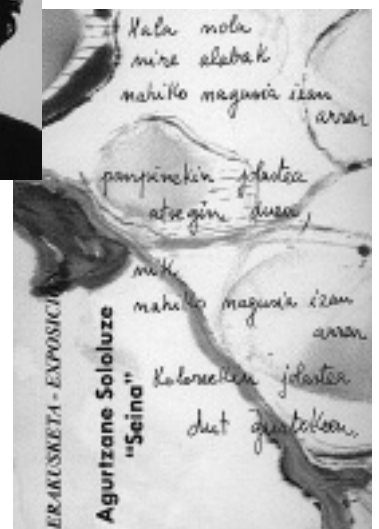 Hala nola
nire alabak
nahiko nagusia izan
arren
panpinekin jolastea
atsegin duen,
nik
nahiko nagusia izan
arren
Koloreekin jolastea
dut gustokoen.
ERAKUSKETA - EXPOSICIÓN
Agurtzane Sololuze
"Seina"